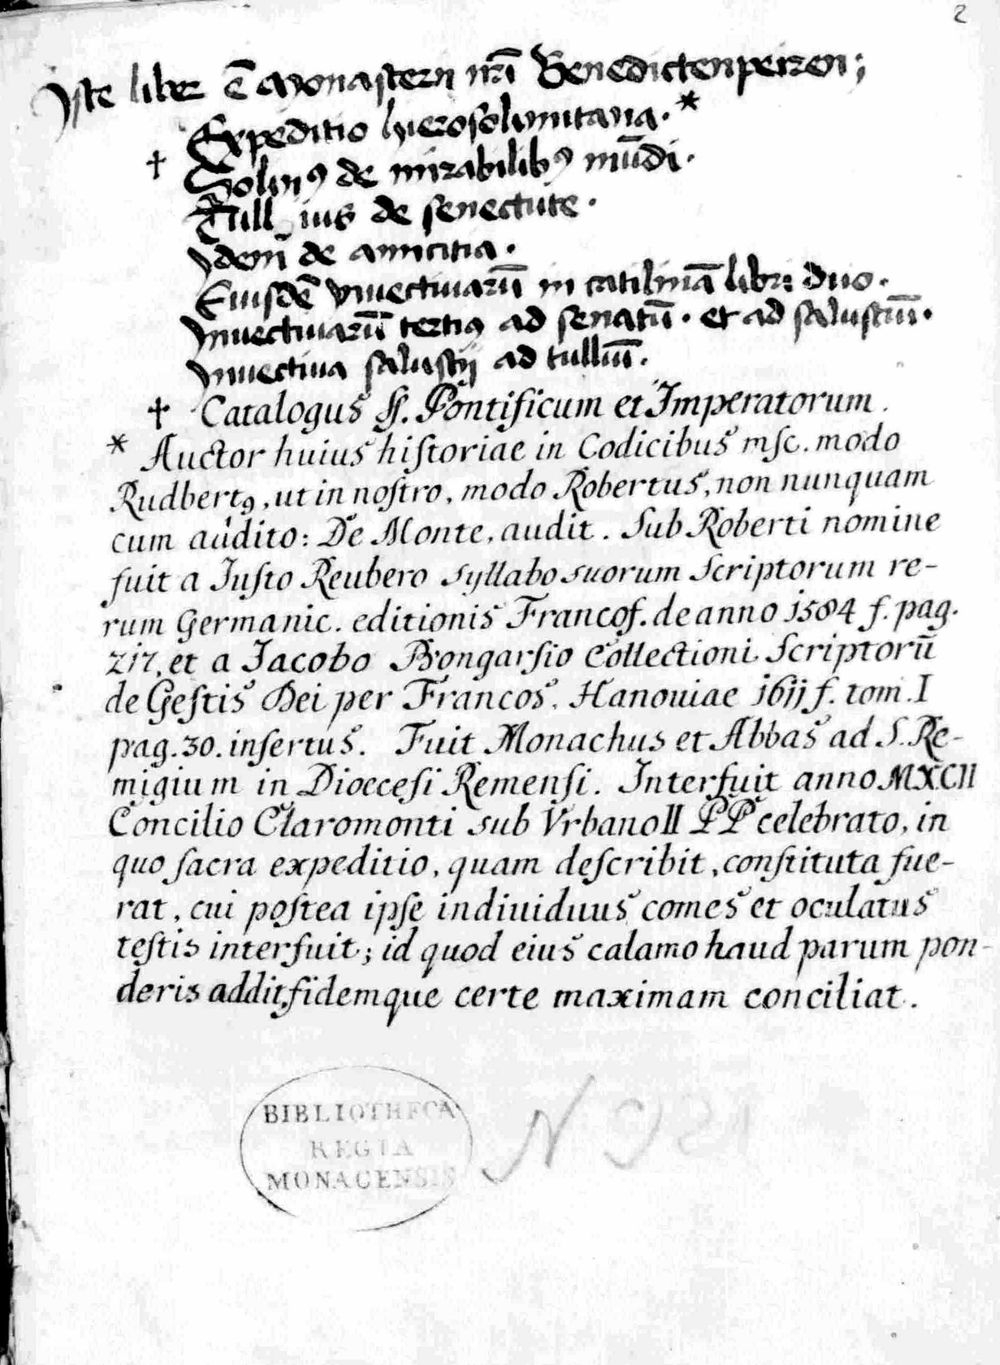 2
Iste liber ē Monasterij nrī Benedictenpeiren;
Expeditio hierosolimitana. *
† Solinꝰ de mirabilibꝰ mūdi.
Tullius de senectute.
Idem de amicitia.
Eiusdē Inuectiuarū in catilinā libri duo.
Inuectiuarū tertiꝰ ad senatū. et ad salustiū.
Inuectiua salustij ad tulliū.
† Catalogus SS. Pontificum et Imperatorum.
* Auctor huius historiae in Codicibus msc. modo
Rudbertꝰ, ut in nostro, modo Robertus, non nunquam
cum audito: De Monte, audit. Sub Roberti nomine
fuit a Iusto Reubero syllabo suorum Scriptorum re-
rum Germanic. editionis Francof. de anno 1584 f. pag.
217, et a Jacobo Bongarsio Collectioni Scriptorū
de Gestis Dei per Francos, Hanouiae 1611 f. tom. I
pag. 30. insertus. Fuit Monachus et Abbas ad S. Re-
migium in Dioecesi Remensi. Interfuit anno MXCII
Concilio Claromonti sub Vrbano II PP celebrato, in
quo sacra expeditio, quam describit, constituta fue-
rat, cui postea ipse indiuiduus comes et oculatus
testis interfuit; id quod eius calamo haud parum pon-
deris addit, fidemque certe maximam conciliat.
BIBLIOTHECA
REGIA
MONACENSIS
N